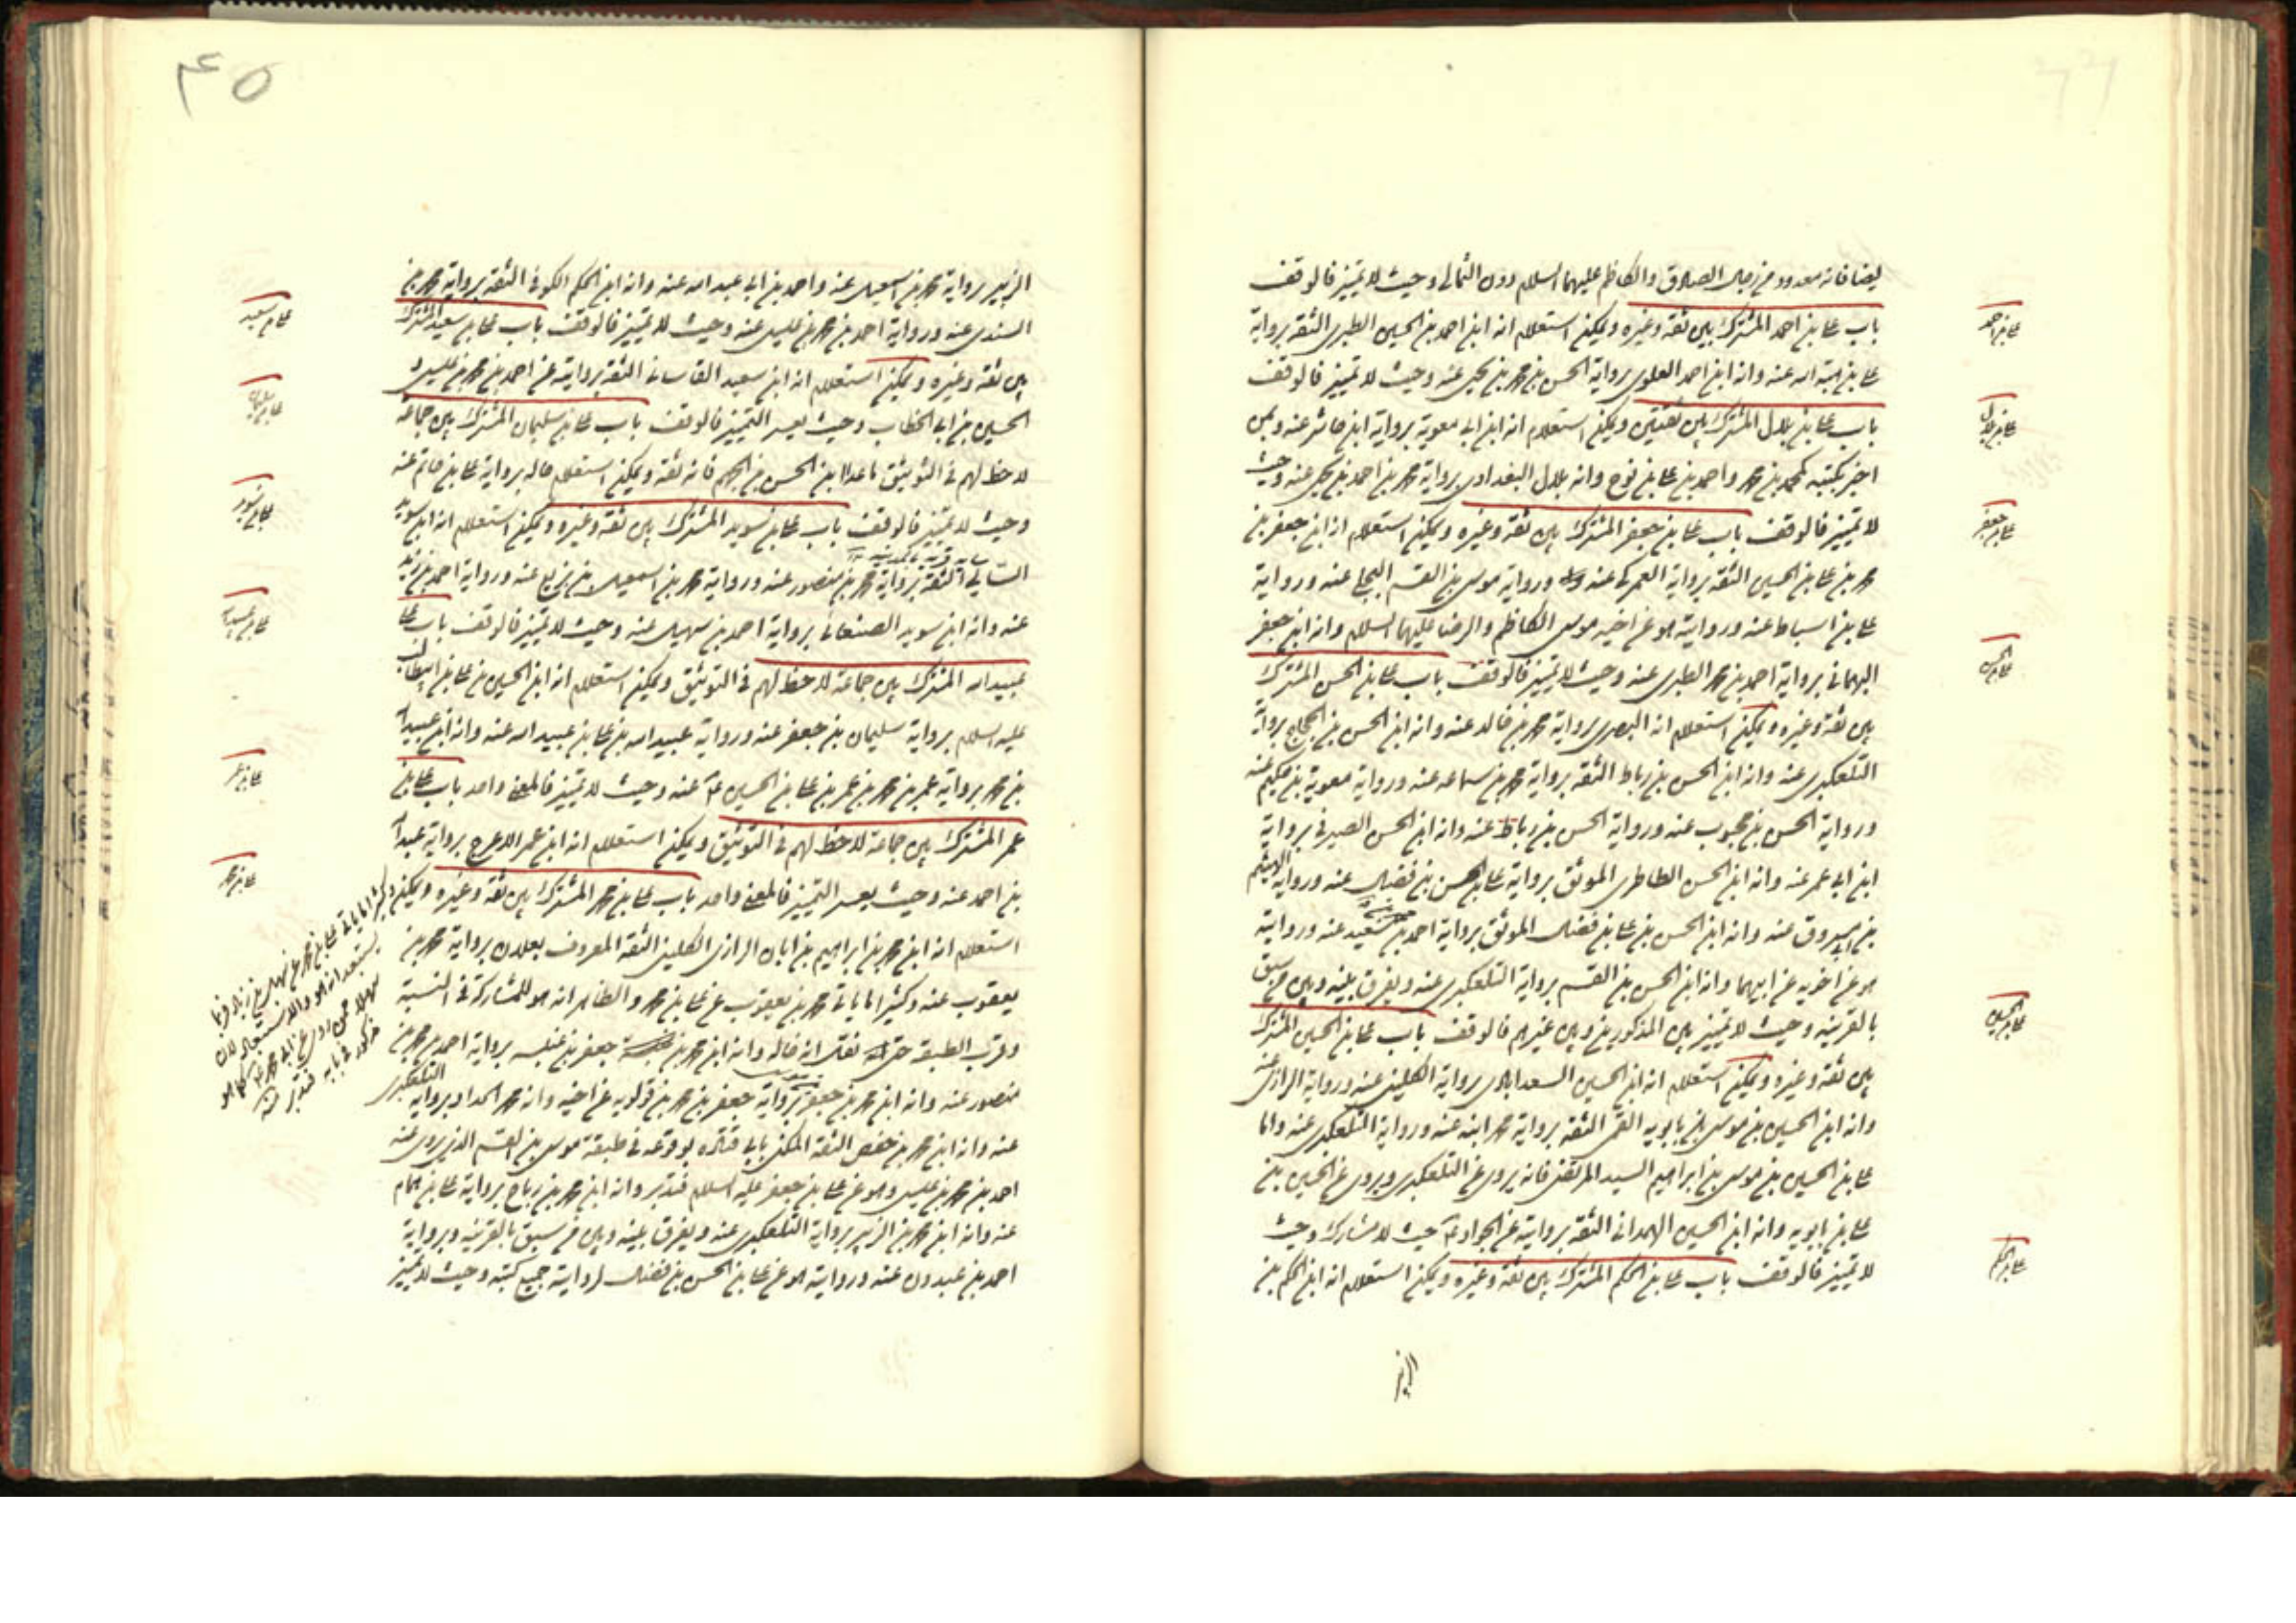 ايضا فانه معدود من رجال الصادق والكاظم عليهما السلام دون الثمالى وحيث لا تمييز فالوقف
باب على بن احمد المشترك بين ثقة وغيره ويمكن استعلام انه ابن احمد بن الحسين الطبرى الثقة برواية
على بن هبة الله عنه وانه ابن احمد العلوى برواية الحسن بن محمد بن يحيى عنه وحيث لا تمييز فالوقف
باب على بن بلال المشترك بين ثقتين ويمكن استعلام انه ابن ابى معوية برواية ابن حاشر عنه وبمن
اخبر بكتبه كمحمد بن محمد واحمد بن على بن نوح وانه بلال البغدادى برواية محمد بن احمد بن يحيى عنه وحيث
لا تمييز فالوقف باب على بن جعفر المشترك بين ثقة وغيره ويمكن استعلام انه ابن جعفر بن
محمد بن على بن الحسين الثقة برواية العمركى عنه ورواية موسى بن القسم البجلى عنه ورواية
على بن اسباط عنه وروايته هو عن اخيه موسى الكاظم والرضا عليهما السلام وانه ابن جعفر
الهمانى برواية احمد بن محمد الطبرى عنه وحيث لا تمييز فالوقف باب على بن الحسن المشترك
بين ثقة وغيره ويمكن استعلام انه البصرى برواية محمد بن خالد عنه وانه ابن الحسن بن الحجاج برواية
التلعكبرى عنه وانه ابن الحسن بن رباط الثقة برواية محمد بن سماعه عنه ورواية معوية بن حكيم عنه
ورواية الحسن بن محبوب عنه ورواية الحسن بن رباط عنه وانه ابن الحسن الصيرفى برواية
ابن ابى عمر عنه وانه ابن الحسن الطاطرى الموثق برواية على بن الحسن بن فضال عنه ورواية الهيثم
بن ابى مسروق عنه وانه ابن الحسن بن على بن فضال الموثق برواية احمد بن محمد بن سعيد عنه ورواية
هو عن اخويه عن ابيهما وانه ابن الحسن بن القسم برواية التلعكبرى عنه ويفرق بينه وبين من سبق
بالقرينه وحيث لا تمييز بين المذكورين وبين غيرهم فالوقف باب على بن الحسين المشترك
بين ثقة وغيره ويمكن استعلام انه ابن الحسين السعدابادى برواية الكلينى عنه ورواية الزرارى عنه
وانه ابن الحسين بن موسى بن بابويه القمى الثقة برواية محمد ابنه عنه ورواية التلعكبرى عنه واما
على بن الحسين بن موسى بن ابراهيم السيد المرتضى فانه يروى عن التلعكبرى ويروى عن الحسين بن
على بن بابويه وانه ابن الحسين الهمدانى الثقة بروايته عن الجواد ع حيث لا مشارك وحيث
لا تمييز فالوقف باب على بن الحكم المشترك بين ثقة وغيره ويمكن استعلام انه ابن الحكم بن
الزبير
على بن احمد
على بن بلال
على بن جعفر
على بن الحسن
على بن الحسين
على بن الحكم
٤٥
الزبير برواية محمد بن اسمعيل عنه واحمد بن ابى عبد الله عنه وانه ابن الحكم الكوفى الثقة برواية محمد بن
السندى عنه ورواية احمد بن محمد بن عيسى عنه وحيث لا تمييز فالوقف باب على بن سعيد المشترك
بين ثقة وغيره ويمكن استعلام انه ابن سعيد القاسانى الثقة بروايته عن احمد بن محمد بن عيسى و
الحسين بن ابى الخطاب وحيث يعسر التمييز فالوقف باب على بن سليمان المشترك بين جماعه
لا حظ لهم فى التوثيق ما عدا ابن الحسن بن الجهم فانه ثقة ويمكن استعلام حاله برواية على بن حاتم عنه
وحيث لا تمييز فالوقف باب على بن سويد المشترك بين ثقة وغيره ويمكن استعلام انه ابن سويد
السائى الثقة برواية محمد بن منصور عنه ورواية محمد بن اسمعيل بن بزيع عنه ورواية احمد بن زيد
عنه وانه ابن سويد الصنعانى برواية احمد بن سهيل عنه وحيث لا تمييز فالوقف باب على
عبيد الله المشترك بين جماعة لا حظ لهم فى التوثيق ويمكن استعلام انه ابن الحسين بن على بن ابيطالب
عليه السلام برواية سليمان بن جعفر عنه ورواية عبيد الله بن على بن عبيد الله عنه وانه ابن عبيد الله
بن محمد برواية عمر بن محمد بن عمر بن على بن الحسين ع عنه وحيث لا تمييز فالمعنى واحد باب على بن
عمر المشترك بين جماعة لا حظ لهم فى التوثيق ويمكن استعلام انه ابن عمر الاعرج برواية عبد الله
بن احمد عنه وحيث يعسر التمييز فالمعنى واحد باب على بن محمد المشترك بين ثقة وغيره ويمكن
استعلام انه ابن محمد بن ابراهيم بن ابان الرازى الكلينى الثقة المعروف بعلان برواية محمد بن
يعقوب عنه وكثيرا ما ياتى محمد بن يعقوب عن على بن محمد والظاهر انه هو للمشاركة فى النسبة
وقرب الطبقة حتى نقل انه خاله وانه ابن محمد بن جعفر بن عنبسه برواية احمد بن محمد بن
منصور عنه وانه ابن محمد بن جعفر برواية جعفر بن محمد بن قولويه عن اخيه وانه محمد الحداد برواية التلعكبرى
عنه وانه ابن محمد بن حفص الثقة المكنى بابى قتاده لوقوعه فى طبقة موسى بن القسم الذى روى عنه
احمد بن محمد بن عيسى وهو عن على بن جعفر عليه السلام فتدبر وانه ابن محمد بن رباح برواية على بن همام
عنه وانه ابن محمد بن الزبير برواية التلعكبرى عنه ويفرق بينه وبين من سبق بالقرينه وبرواية
احمد بن عبدون عنه وروايته هو عن على بن الحسن بن فضال لروايته جميع كتبه وحيث لا تمييز
على بن سعيد
على بن سليمان
على بن سويد
على بن عبيد الله
على بن عمر
على بن محمد
وكثيرا ما ياتى على بن محمد عن سهل بن زياد